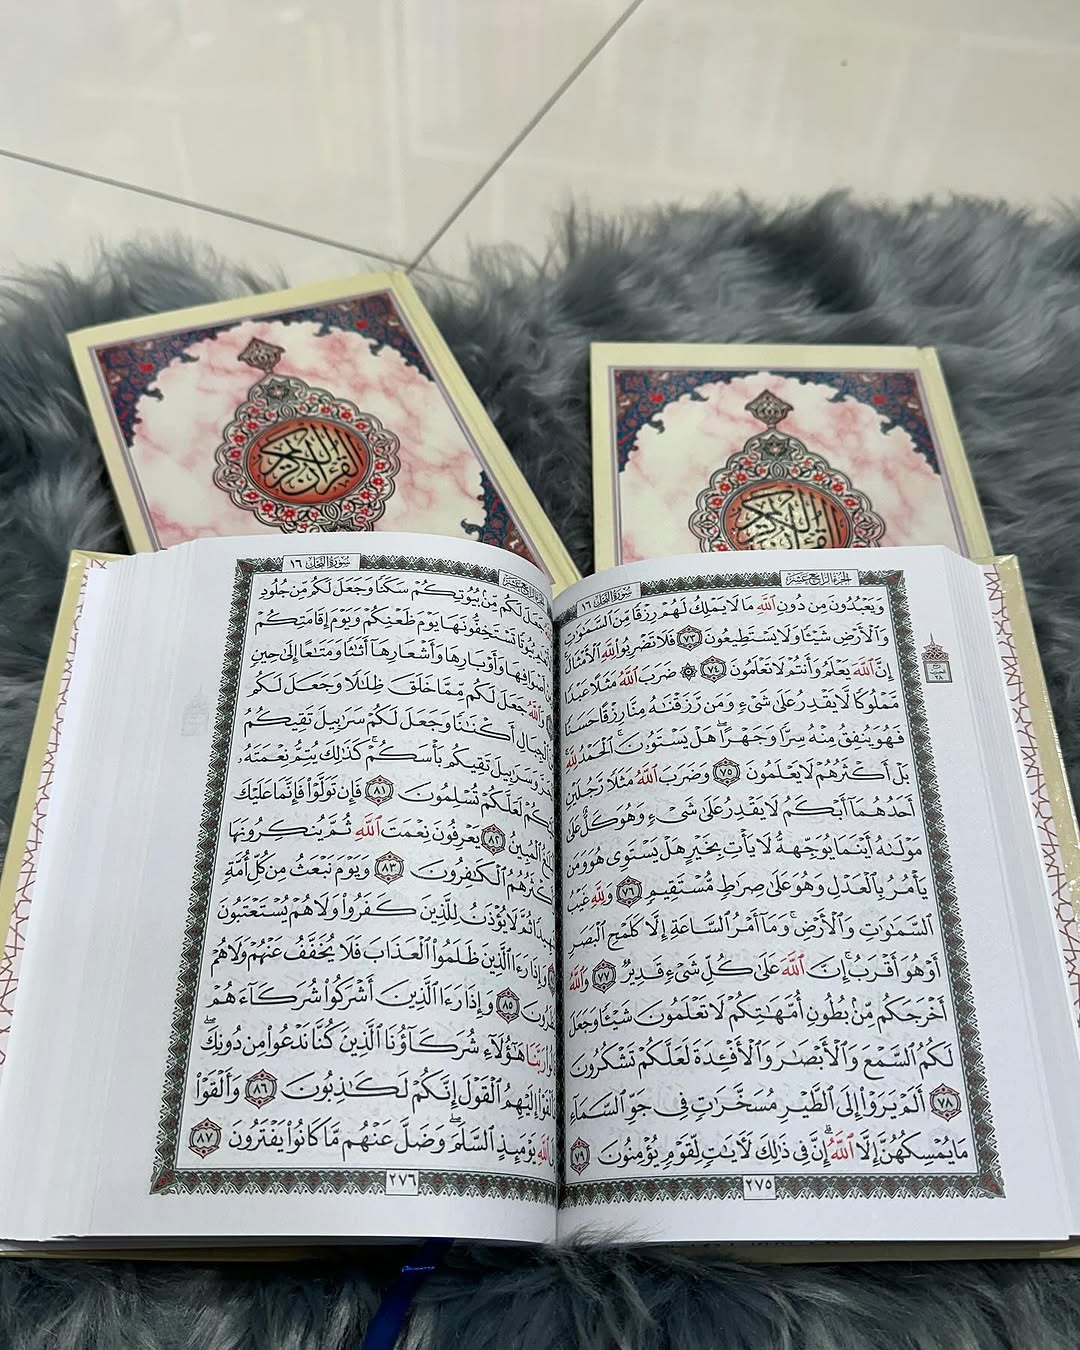 القرآن الكريم
القرآن الكريم
الجزء الرابع عشر
سورة النحل ١٦
وَيَعْبُدُونَ مِن دُونِ ٱللَّهِ مَا لَا يَمْلِكُ لَهُمْ رِزْقًا مِّنَ ٱلسَّمَٰوَٰتِ
وَٱلْأَرْضِ شَيْـًٔا وَلَا يَسْتَطِيعُونَ ٧٣ فَلَا تَضْرِبُوا۟ لِلَّهِ ٱلْأَمْثَالَ
إِنَّ ٱللَّهَ يَعْلَمُ وَأَنتُمْ لَا تَعْلَمُونَ ٧٤ ۞ ضَرَبَ ٱللَّهُ مَثَلًا عَبْدًا
مَّمْلُوكًا لَّا يَقْدِرُ عَلَىٰ شَىْءٍ وَمَن رَّزَقْنَٰهُ مِنَّا رِزْقًا حَسَنًا
فَهُوَ يُنفِقُ مِنْهُ سِرًّا وَجَهْرًا ۖ هَلْ يَسْتَوُۥنَ ۚ ٱلْحَمْدُ لِلَّهِ
بَلْ أَكْثَرُهُمْ لَا يَعْلَمُونَ ٧٥ وَضَرَبَ ٱللَّهُ مَثَلًا رَّجُلَيْنِ
أَحَدُهُمَآ أَبْكَمُ لَا يَقْدِرُ عَلَىٰ شَىْءٍ وَهُوَ كَلٌّ عَلَىٰ
مَوْلَىٰهُ أَيْنَمَا يُوَجِّههُّ لَا يَأْتِ بِخَيْرٍ هَلْ يَسْتَوِى هُوَ وَمَن
يَأْمُرُ بِٱلْعَدْلِ وَهُوَ عَلَىٰ صِرَٰطٍ مُّسْتَقِيمٍ ٧٦ وَلِلَّهِ غَيْبُ
ٱلسَّمَٰوَٰتِ وَٱلْأَرْضِ ۚ وَمَآ أَمْرُ ٱلسَّاعَةِ إِلَّا كَلَمْحِ ٱلْبَصَرِ
أَوْ هُوَ أَقْرَبُ ۚ إِنَّ ٱللَّهَ عَلَىٰ كُلِّ شَىْءٍ قَدِيرٌ ٧٧ وَٱللَّهُ
أَخْرَجَكُم مِّنۢ بُطُونِ أُمَّهَٰتِكُمْ لَا تَعْلَمُونَ شَيْـًٔا وَجَعَلَ
لَكُمُ ٱلسَّمْعَ وَٱلْأَبْصَٰرَ وَٱلْأَفْـِٔدَةَ لَعَلَّكُمْ تَشْكُرُونَ
٧٨ أَلَمْ يَرَوْا۟ إِلَى ٱلطَّيْرِ مُسَخَّرَٰتٍ فِى جَوِّ ٱلسَّمَآءِ
مَا يُمْسِكُهُنَّ إِلَّا ٱللَّهُ ۗ إِنَّ فِى ذَٰلِكَ لَءَايَٰتٍ لِّقَوْمٍ يُؤْمِنُونَ ٧٩
٢٧٥
سورة النحل ١٦
جَعَلَ لَكُم مِّنۢ بُيُوتِكُمْ سَكَنًا وَجَعَلَ لَكُم مِّن جُلُودِ
بُيُوتًا تَسْتَخِفُّونَهَا يَوْمَ ظَعْنِكُمْ وَيَوْمَ إِقَامَتِكُمْ
أَصْوَافِهَا وَأَوْبَارِهَا وَأَشْعَارِهَآ أَثَٰثًا وَمَتَٰعًا إِلَىٰ حِينٍ
وَٱللَّهُ جَعَلَ لَكُم مِّمَّا خَلَقَ ظِلَٰلًا وَجَعَلَ لَكُم
ٱلْجِبَالِ أَكْنَٰنًا وَجَعَلَ لَكُمْ سَرَٰبِيلَ تَقِيكُمُ
وَسَرَٰبِيلَ تَقِيكُم بَأْسَكُمْ ۚ كَذَٰلِكَ يُتِمُّ نِعْمَتَهُۥ
لَعَلَّكُمْ تُسْلِمُونَ ٨١ فَإِن تَوَلَّوْا۟ فَإِنَّمَا عَلَيْكَ
ٱلْمُبِينُ ٨٢ يَعْرِفُونَ نِعْمَتَ ٱللَّهِ ثُمَّ يُنكِرُونَهَا
ٱلْكَٰفِرُونَ ٨٣ وَيَوْمَ نَبْعَثُ مِن كُلِّ أُمَّةٍ
ثُمَّ لَا يُؤْذَنُ لِلَّذِينَ كَفَرُوا۟ وَلَا هُمْ يُسْتَعْتَبُونَ
وَإِذَا رَءَا ٱلَّذِينَ ظَلَمُوا۟ ٱلْعَذَابَ فَلَا يُخَفَّفُ عَنْهُمْ وَلَا هُمْ
٨٥ وَإِذَا رَءَا ٱلَّذِينَ أَشْرَكُوا۟ شُرَكَآءَهُمْ
رَبَّنَا هَٰٓؤُلَآءِ شُرَكَآؤُنَا ٱلَّذِينَ كُنَّا نَدْعُوا۟ مِن دُونِكَ ۖ
إِلَيْهِمُ ٱلْقَوْلَ إِنَّكُمْ لَكَٰذِبُونَ ٨٦ وَأَلْقَوْا۟
ٱللَّهِ يَوْمَئِذٍ ٱلسَّلَمَ ۖ وَضَلَّ عَنْهُم مَّا كَانُوا۟ يَفْتَرُونَ ٨٧
٢٧٦